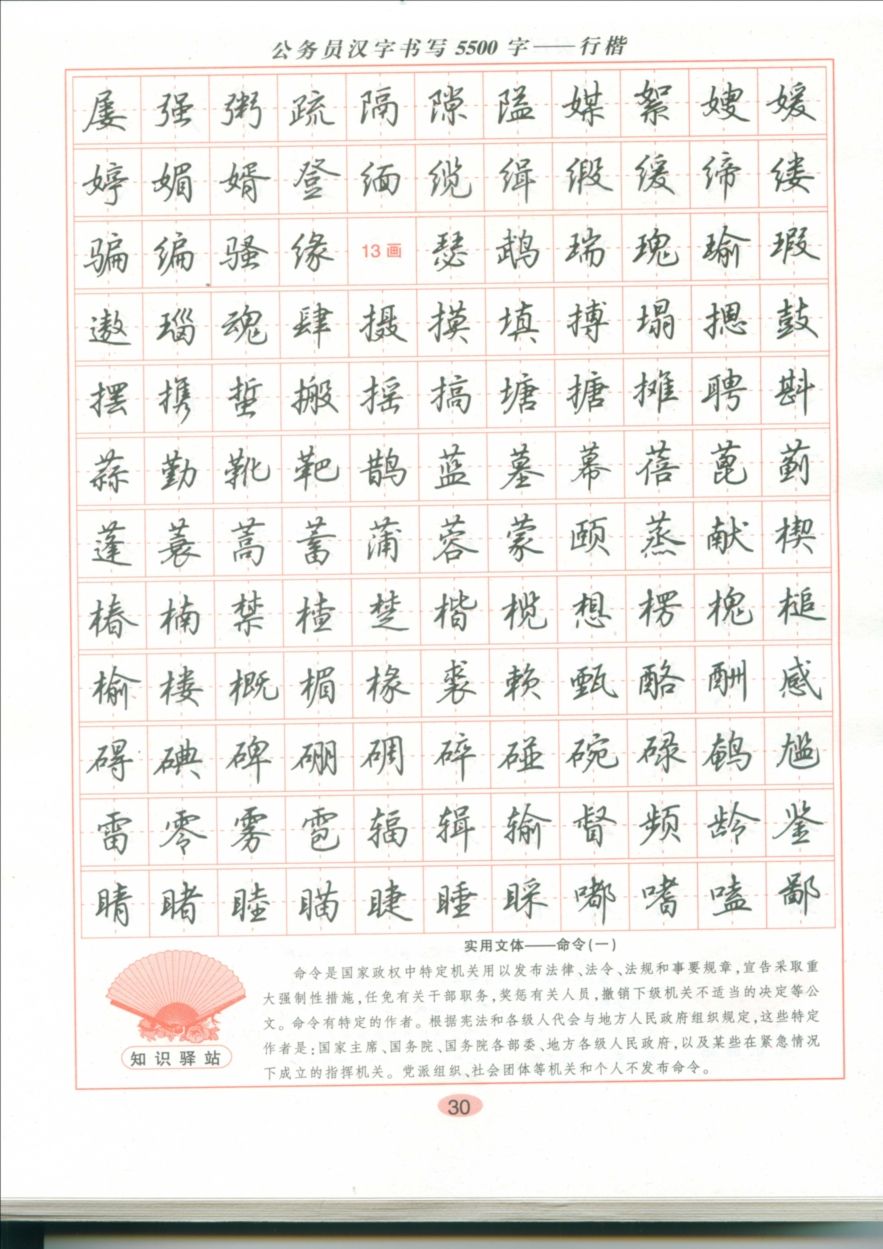 公务员汉字书写5500字——行楷
屡强粥疏隔隙隘媒絮嫂媛
婷媚婿登缅缆缉缎缓缔缕
骗编骚缘13画瑟鹉瑞瑰瑜瑕
遨瑙魂肆摄摸填搏塌摁鼓
摆携蜇搬摇搞塘搪摊聘斟
蒜勤靴靶鹊蓝墓幕蓓蓖蓟
蓬蓑蒿蓄蒲蓉蒙颐蒸献楔
椿楠禁楂楚楷榄想楞槐槌
榆楼概楣椽裘赖甄酪酬感
碍碘碑硼碉碎碰碗碌鹌尴
雷零雾雹辐辑输督频龄鉴
睛睹睦瞄睫睡睬嘟嗜嗑鄙
实用文体——命令(一)
命令是国家政权中特定机关用以发布法律、法令、法规和事要规章,宣告采取重
大强制性措施,任免有关干部职务,奖惩有关人员,撤销下级机关不适当的决定等公
文。命令有特定的作者。根据宪法和各级人代会与地方人民政府组织规定,这些特定
作者是:国家主席、国务院、国务院各部委、地方各级人民政府,以及某些在紧急情况
下成立的指挥机关。党派组织、社会团体等机关和个人不发布命令。
知识驿站
30